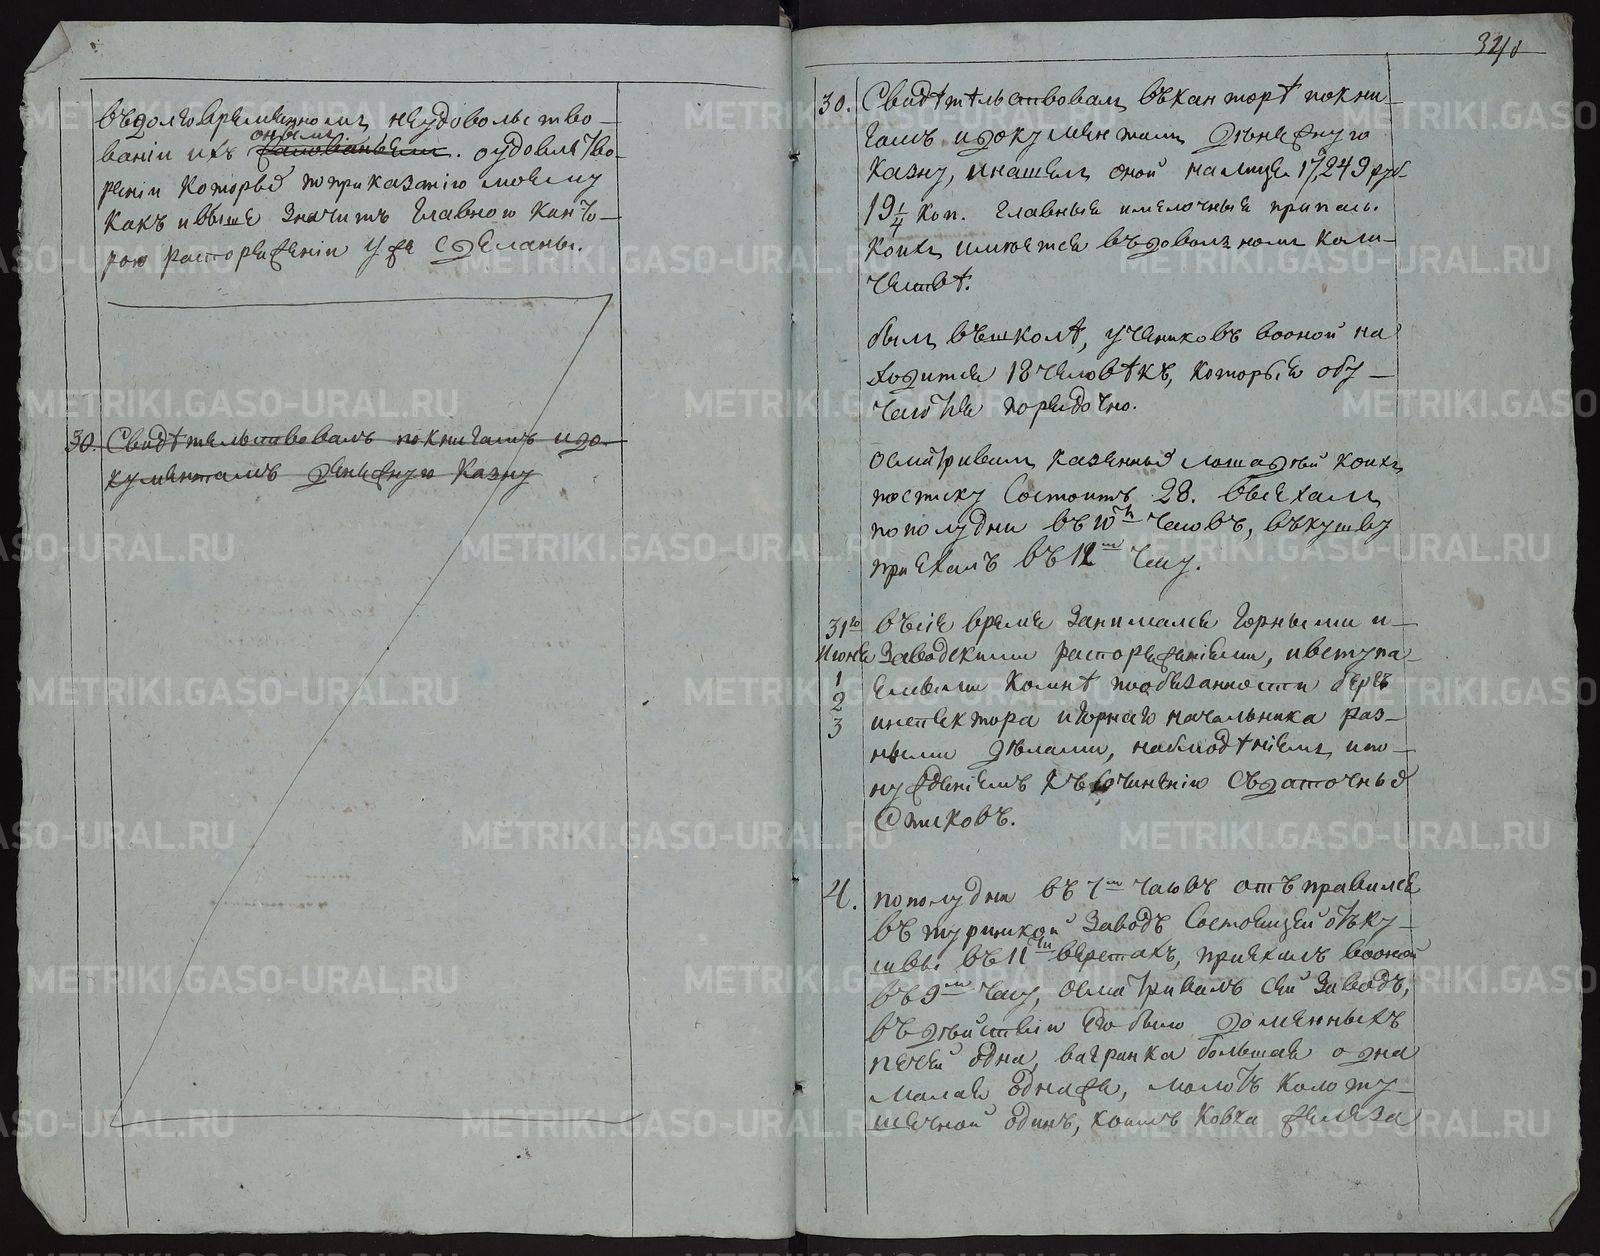 въ долговременномъ неудовольство-
ваніи ихъ жалованьемъ. о удовлетво-
онымъ
реніи которыхъ по приказанію моему
какъ и выше значитъ главною канто-
рою распоряженіи уже сделаны.
30. Свидѣтельствовалъ по книгамъ и до-
кументамъ денежную казну
340
30. Свидѣтельствовалъ въ канторѣ по кни-
гамъ и документамъ денежную
казну, и нашелъ оной налицо 17,249 руб.
19 1/4 коп. главныя и мелочныя припасы
коихъ имеется въ довольномъ коли-
чествѣ.
былъ въ школѣ, учениковъ во оной на
ходится 18 человѣкъ, которыя обу-
чаются порядочно.
Осматривалъ казенныхъ лошадей коихъ
по списку состоитъ 28. выехалъ
по полудни въ 10ть часовъ, въ кушву
приехалъ въ 12мъ часу.
31го въ сіе время занимался горными и
Июня заводскими распоряженіями, и вступа-
1 емыми ко мнѣ по обязанности бергъ
2 инспектора и горнаго начальника раз-
3 ными делами, наблюдѣніемъ и по-
нужденіемъ къ сочиненію сдаточныхъ
списковъ.
4. по полудни въ 7мъ часовъ отправился
въ туринской заводъ состоящей отъ ку-
швы въ 11ти верстахъ, приехалъ во оной
въ 9мъ часу, осматривалъ сей заводъ,
въ действіи его было доменныхъ
печей одна, вагранка большая одна
малая одна же, молотъ колоту-
шечной одинъ, коимъ ковка железа
METRIKI.GASO-URAL.RU